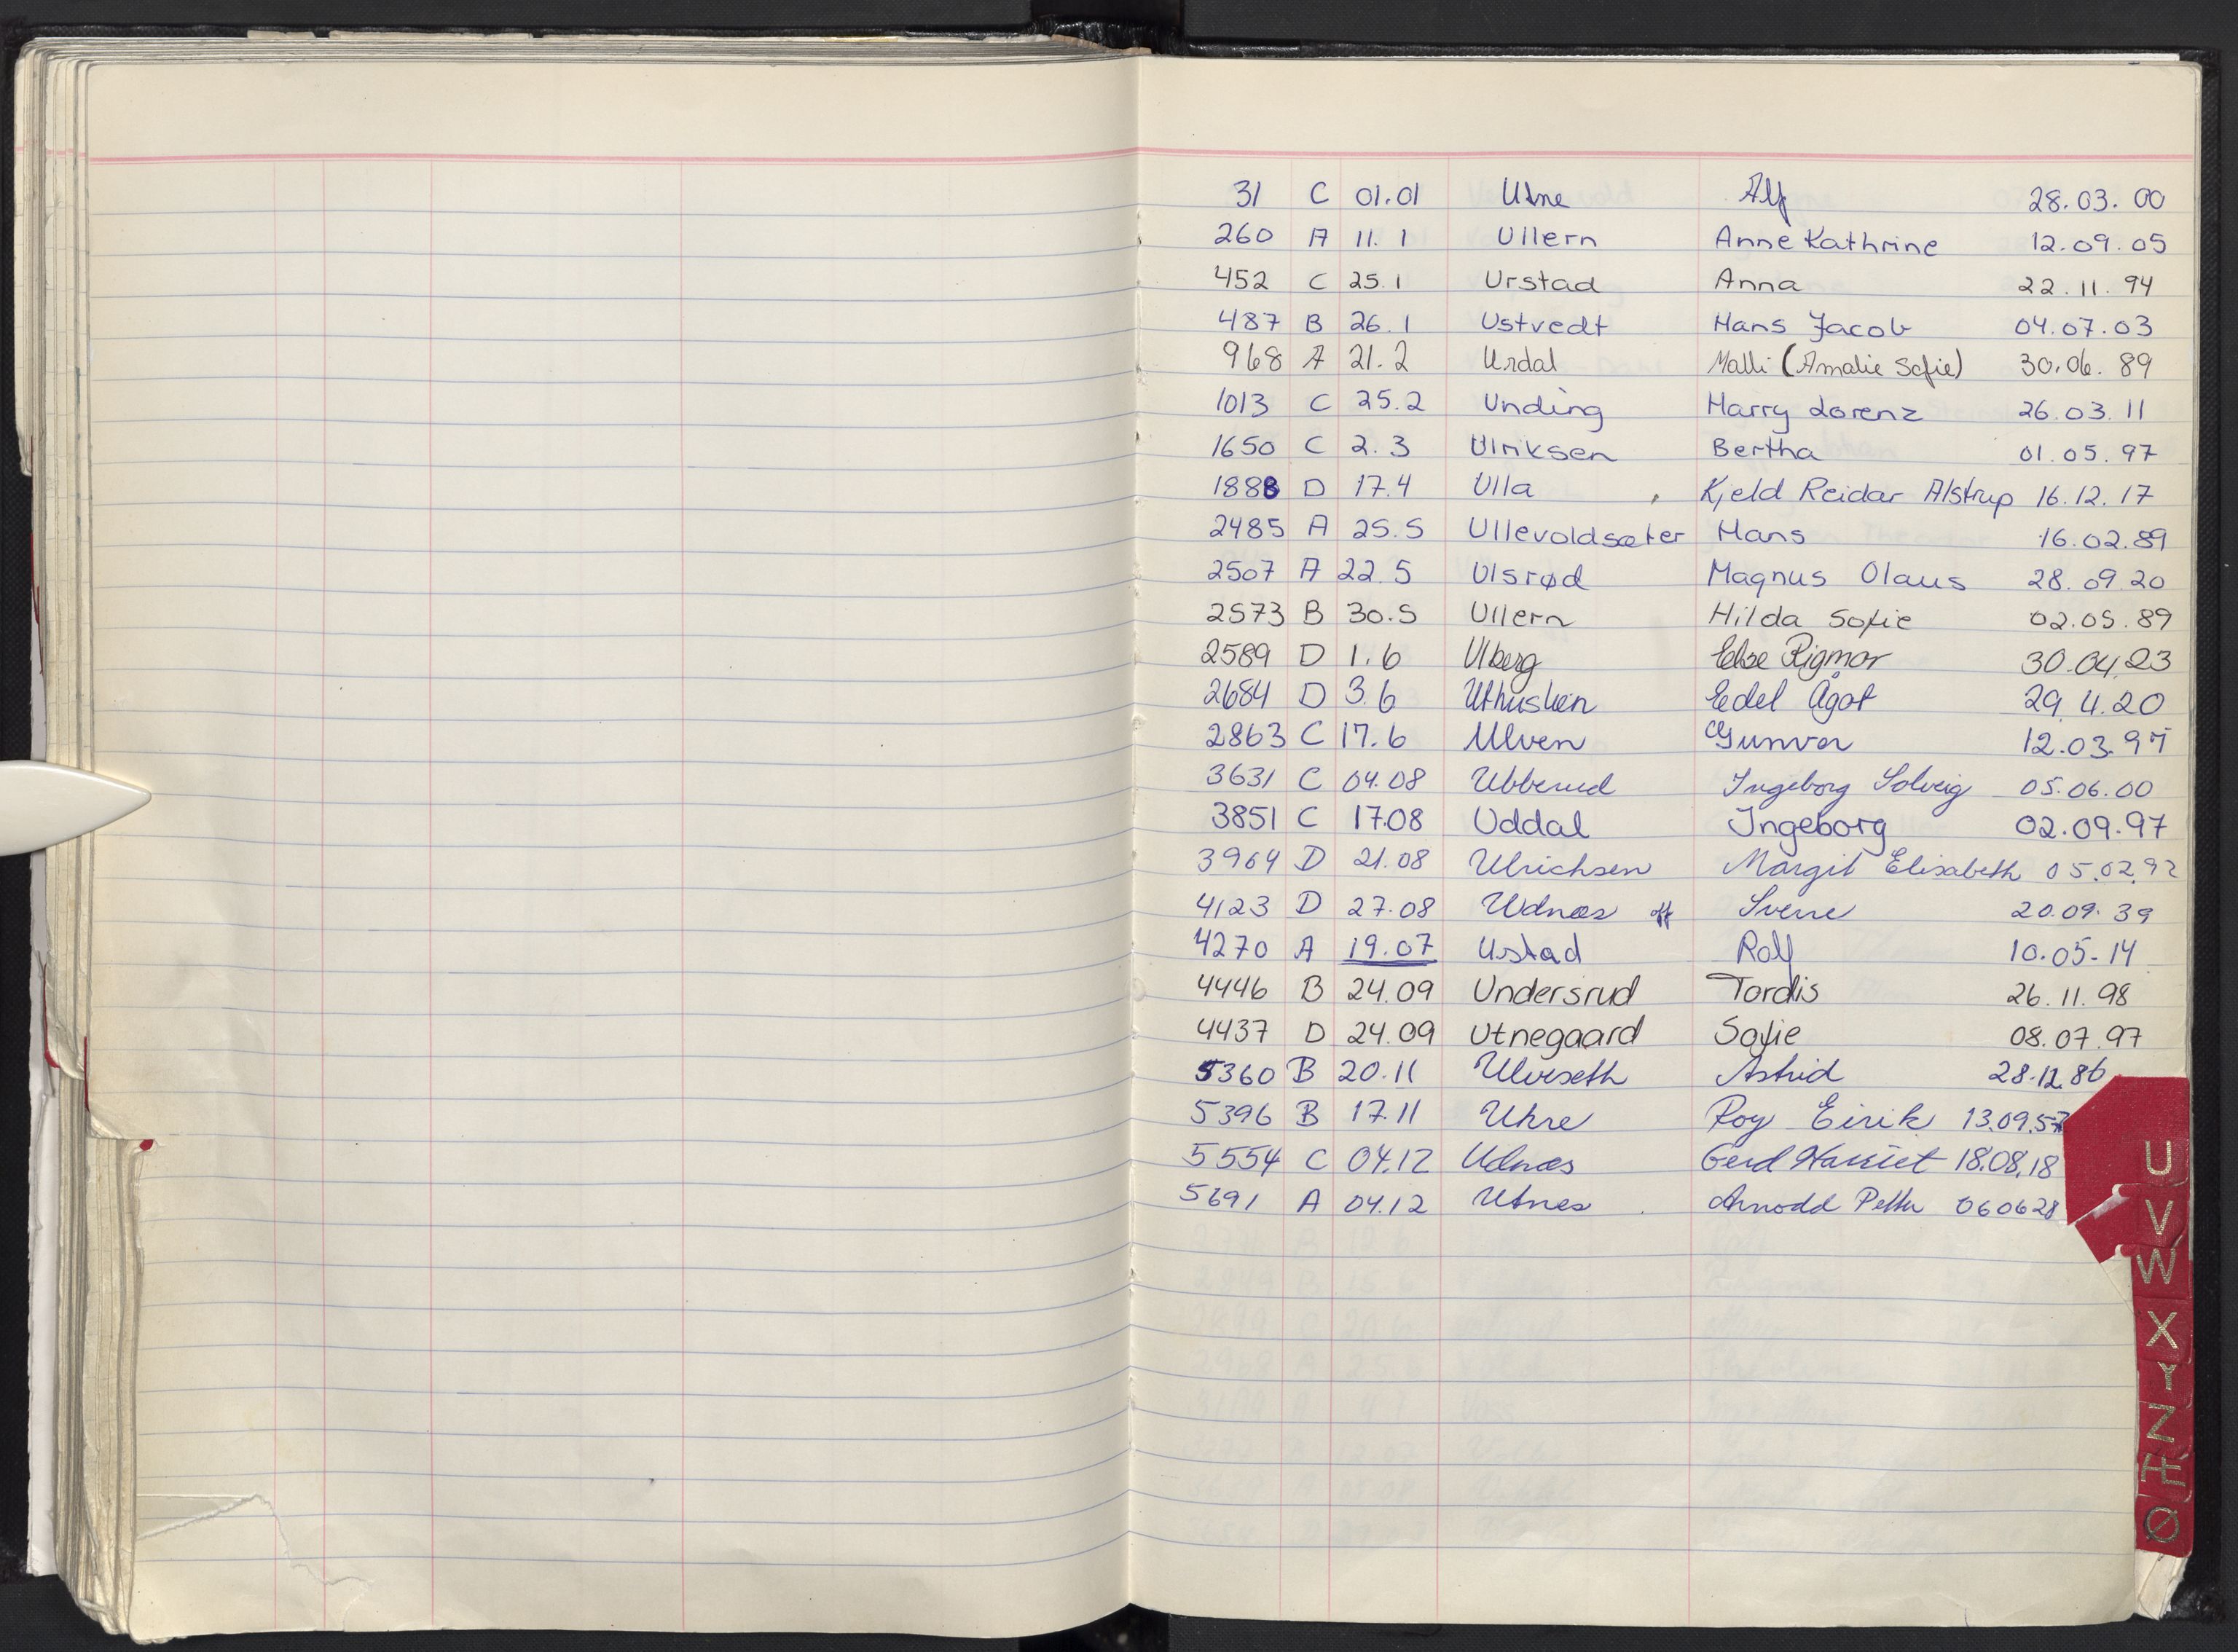 31 C 01.01 Utne Alf 28.03.00
260 A 11.1 Ullern Anne Kathrine 12.09.05
452 C 25.1 Urstad Anna 22.11.94
487 B 26.1 Ustvedt Hans Jacob 04.07.03
968 A 21.2 Urdal Malli (Amalie Sofie) 30.06.89
1013 C 25.2 Unding Harry Lorenz 26.03.11
1650 C 2.3 Ulriksen Bertha 01.05.97
1888 D 17.4 Ulla Kjeld Reidar Alstrup 16.12.17
2485 A 25.5 Ullevoldsæter Hans 16.02.89
2507 A 22.5 Ulsrød Magnus Olaus 28.09.20
2573 B 30.5 Ullern Hilda Sofie 02.05.89
2589 D 1.6 Ulberg Else Rigmor 30.04.23
2684 D 3.6 Uthuslien Edel Ågot 29.4.20
2863 C 17.6 Ulven Gunvor 12.03.97
3631 C 04.08 Ubberud Ingeborg Solveig 05.06.00
3851 C 17.08 Uddal Ingeborg 02.09.97
3964 D 21.08 Ulrichsen Margit Elisabeth 05.02.92
4123 D 27.08 Udnæs Sverre 20.09.39
4270 A 19.07 Ustad Rolf 10.05-14
4446 B 24.09 Undersrud Tordis 26.11.98
4437 D 24.09 Utnegaard Sofie 08.07.97
5360 B 20.11 Ulveseth Astrid 28.12.86
5396 B 17.11 Uhre Roy Eirik 13.09.57
5554 C 04.12 Udnæs Gerd Harriet 18.08.18
5691 A 04.12 Utnes Arnodd Petter 060628
U
V
W
X
Y
Z
Æ
Ø